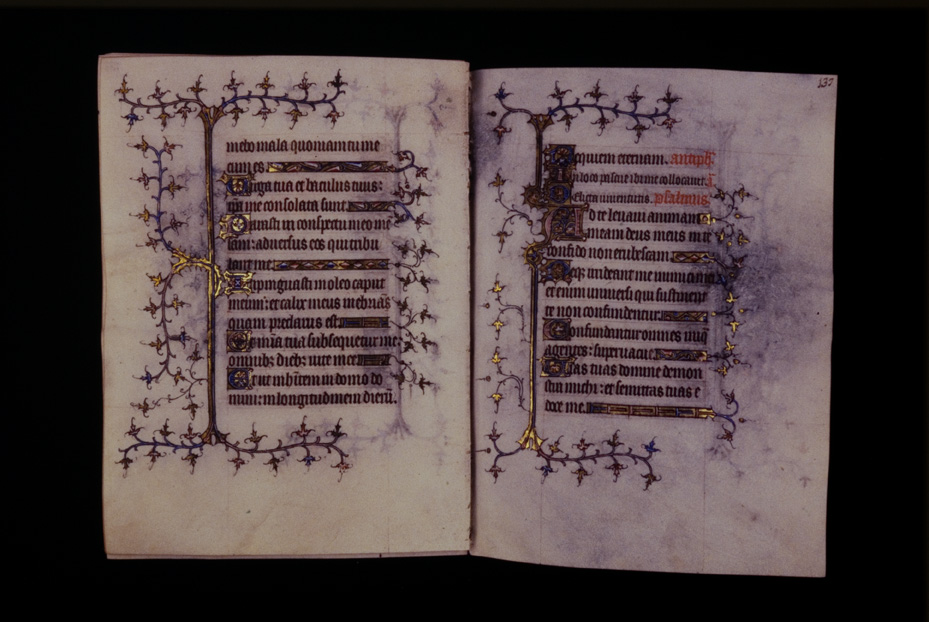 meto mala quoniam tu me
cum es
Virga tua et baculus tuus:
ipa me consolata sunt
Parasti in conspectu meo mē
sam: aduersus eos qui tribu
lant me
Inpinguasti in oleo caput
meum: et calix meus inebriās
quam preclarus est
Et mīa tua subsequetur me:
omnibȝ diebȝ uite mee
Et ut inhītem in domo do
mini: in longitudinem dierū.
137
Requiem eternam. antiph
In loco pascue ibi me collocauit.
Delicta iuuentutis. psalmus
Ad te leuaui animam
meam deus meus in te
confido non erubescam
Neqȝ irrideant me inimici mei
et enim uniuersi qui sustinent
te non confundentur
Confundantur omnes iniq̄
agentes: superuacue
Uias tuas domine demon
stra michi: et semitas tuas e
doce me.